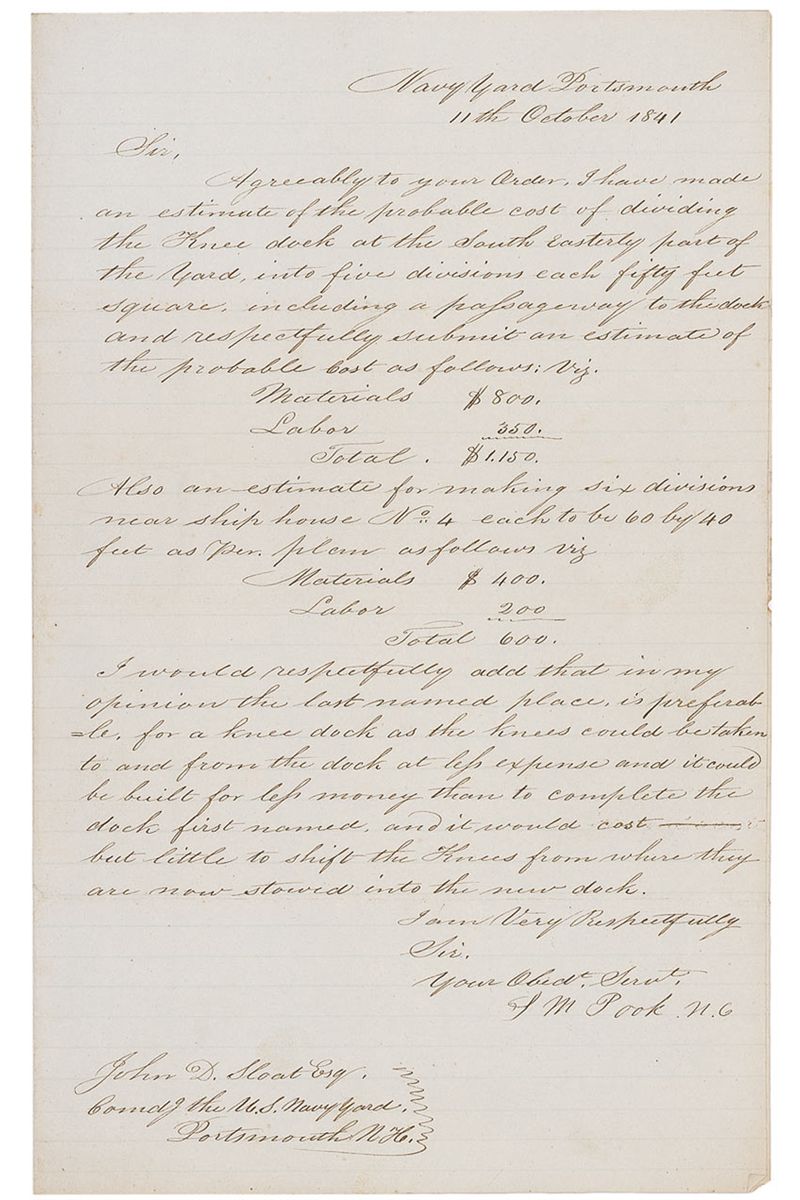 Navy Yard Portsmouth
11th October 1841
Sir,
Agreeably to your Order, I have made
an estimate of the probable cost of dividing
the Knee dock at the South Easterly part of
the Yard, into five divisions each fifty feet
square, including a passageway to the dock
and respectfully submit an estimate of
the probable Cost as follows; Viz.
Materials $800.
Labor 350.
Total. $1.150.
Also an estimate for making six divisions
near ship house No. 4 each to be 60 by 40
feet as Per. plan as follows Viz
Materials $400.
Labor 200
Total 600.
I would respectfully add that in my
opinion the last named place, is preferab-
=le, for a knee dock as the knees could be taken
to and from the dock at less expense and it could
be built for less money than to complete the
dock first named, and it would cost
but little to shift the Knees from where they
are now stowed into the new dock.
I am Very Respectfully
Sir.
Your Obedt. Servt.
S M Pook. N.C
John D. Sloat Esq.
Comdg the U.S. Navy Yard.
Portsmouth N.H.